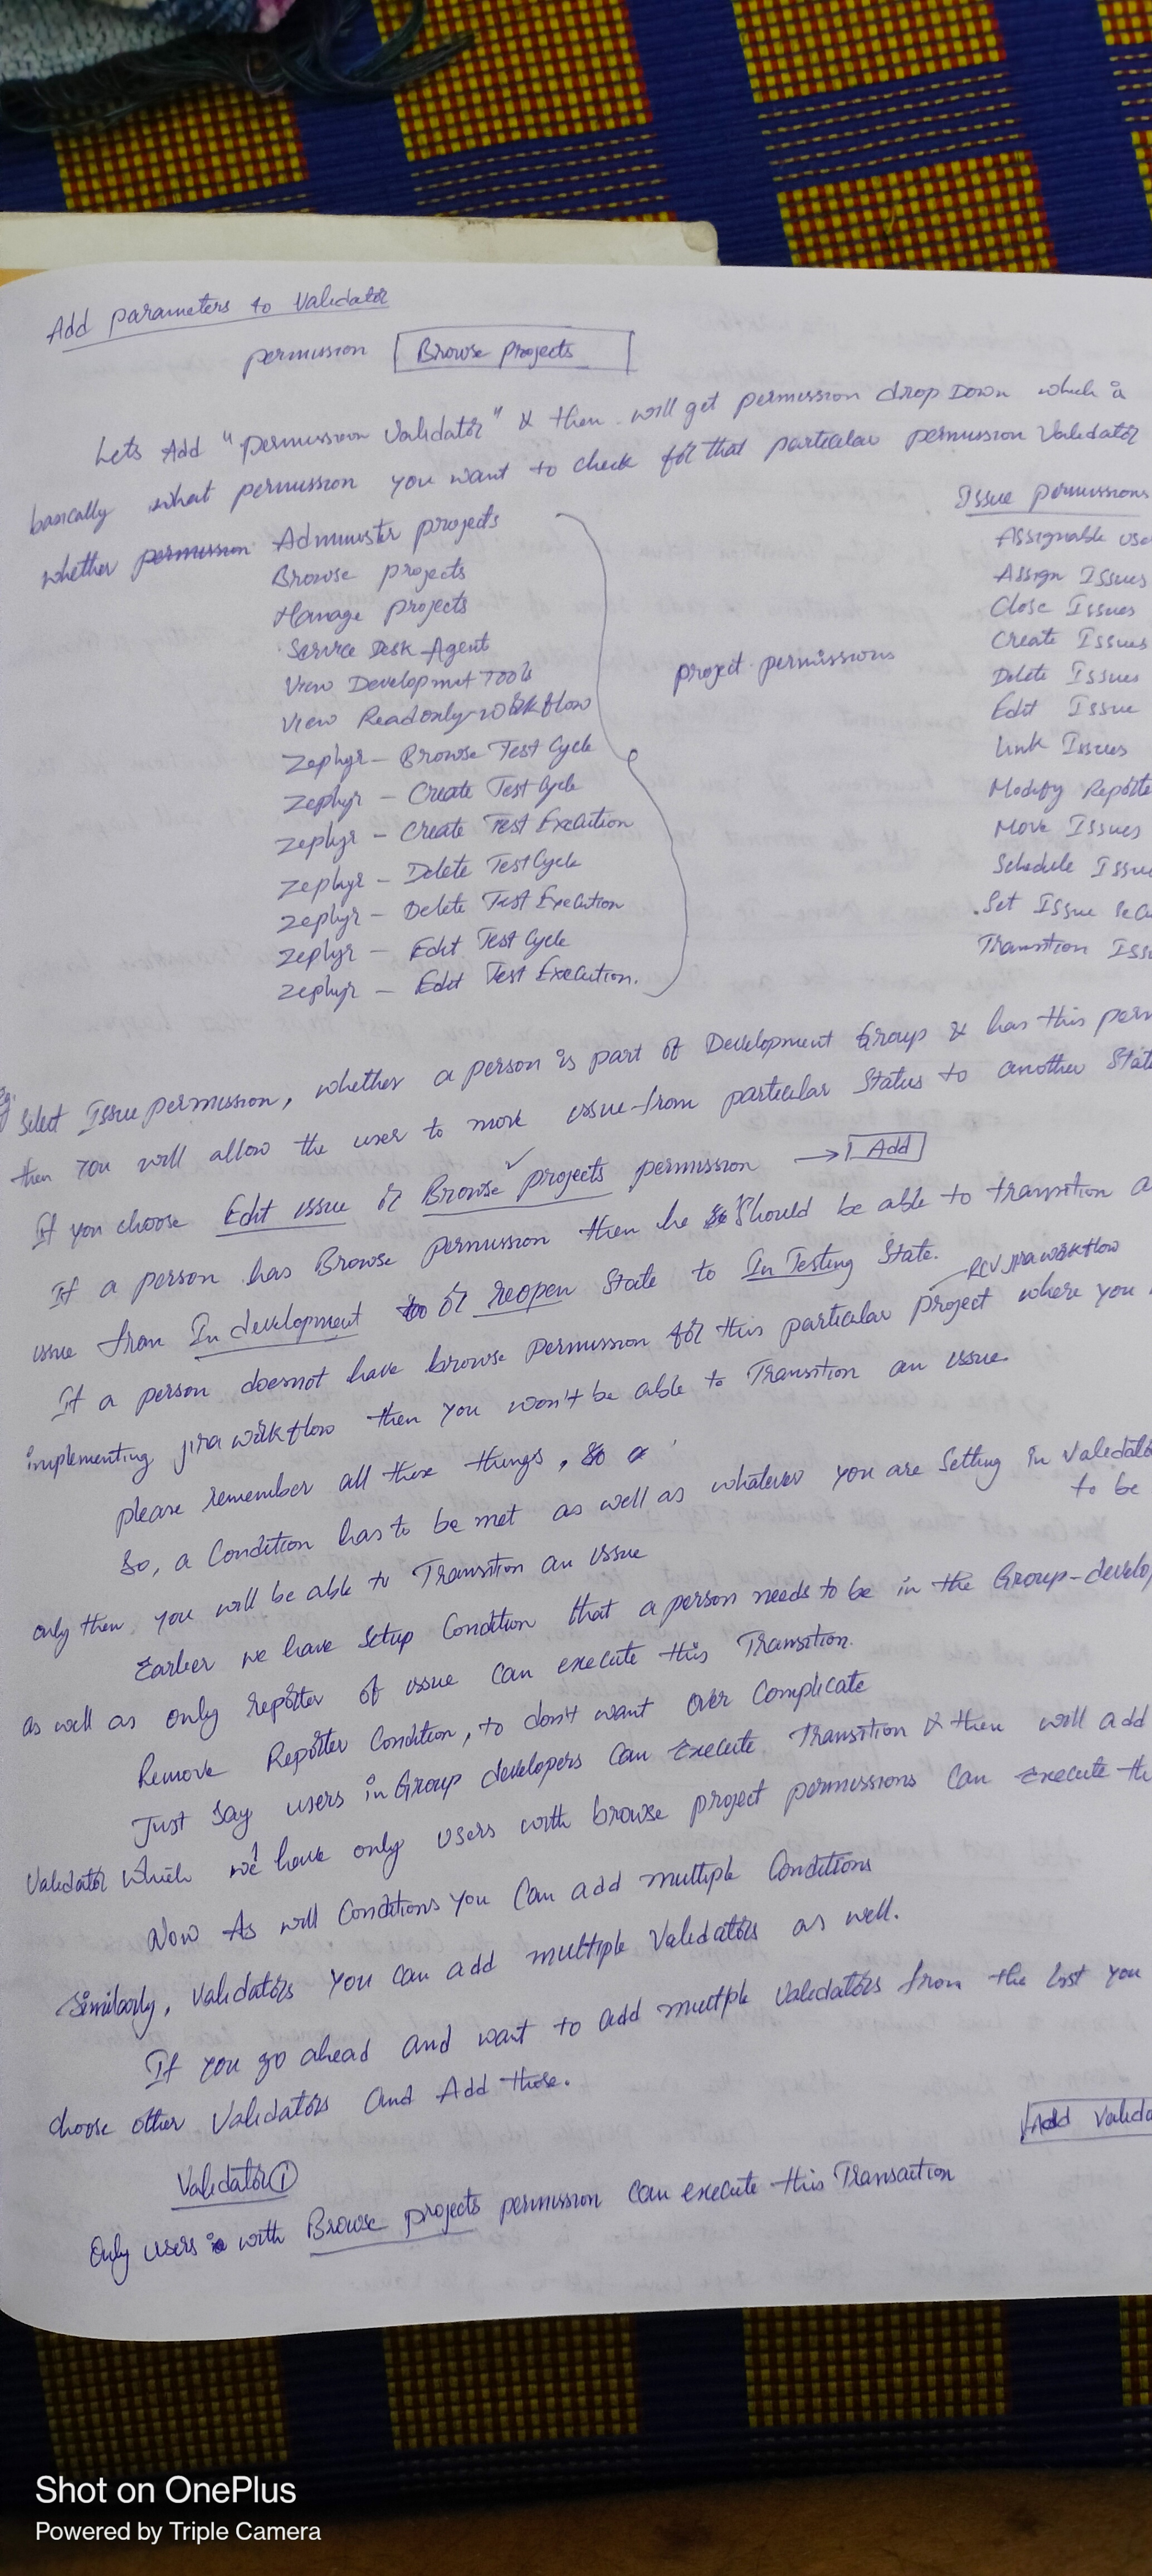 Add parameters to Validator
permission Browse Projects
Lets Add "permission Validator" & then will get permission drop Down which is
basically what permission you want to check for that particular permission Validator
whether permission Administer projects
Issue permissions
Browse projects
Assignable use
Manage projects
Assign Issues
Service Desk Agent
Close Issues
View Developmet Tools
project permissions
Create Issues
View Readonly-workflow
Delete Issues
Zephyr - Browse Test Cycle
Edit Issue
Zephyr - Create Test Cycle
Link Issues
Zephyr - Create Test Execution
Modify Reporte
Zephyr - Delete Test Cycle
Move Issues
Zephyr - Delete Test Execution
Schedule Issue
Zephyr - Edit Test Cycle
Set Issue Secu
Zephyr - Edit Test Execution.
Transition Iss
Eg: Select Issue permission, whether a person is part of Development Group & has this perm
then You will allow the user to move issue from particular Status to another State
If you choose Edit issue or Browse projects permission → Add
If a person has Browse permission then he Should be able to transition a
issue from In development or reopen State to In Testing State.
RCV jira workflow
If a person doesnot have browse permission for this particular project where you
implementing jira workflow then you won't be able to Transition an issue.
please remember all these things, so a
So, a Condition has to be met as well as whatever you are Setting in Validato
to be
only then you will be able to Transition an issue
Earlier we have Setup Condition that a person needs to be in the Group-develop
as well as only reporter of issue can execute this Transition.
Remove Reporter Condition, to don't want over Complicate
Just Say users in Group developers Can Execute Transition & then will add
Validator which we have only users with browse project permissions can execute th
Now As will Conditions you Can add multiple Conditions
Similarly, Validators you can add multiple Validators as well.
If you go ahead and want to add multple Validators from the list you
choose other Validators and Add those.
Add Valida
Validator 1
Only users with Browse projects permission can execute this Transaction
Shot on OnePlus
Powered by Triple Camera